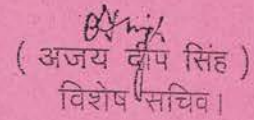 ( अजय दीप सिंह )
विशेष सचिव।